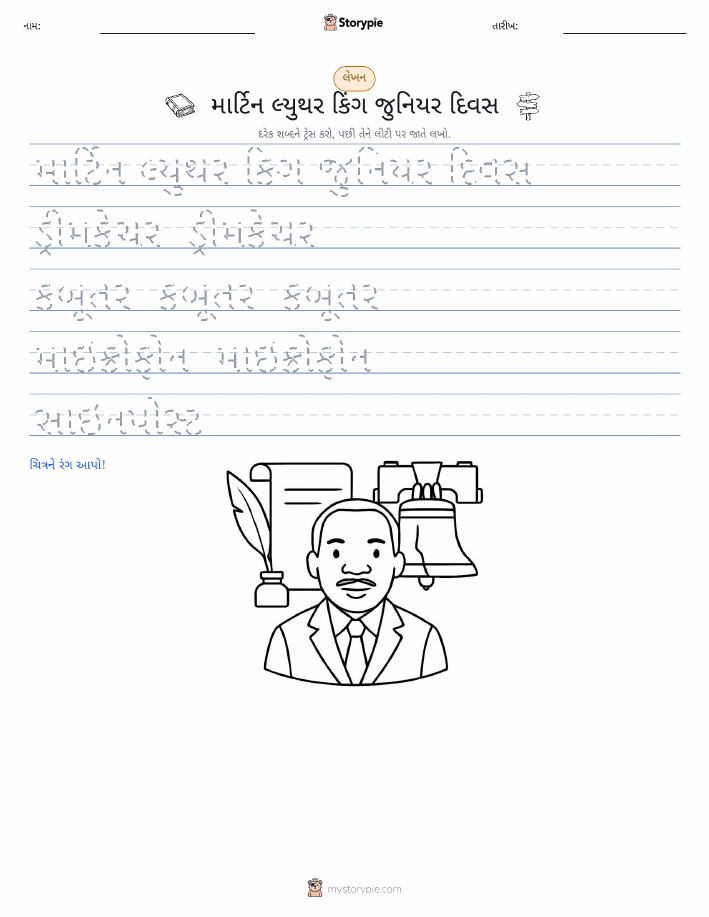 નામ:
Storypie
તારીખ:
લેખન
માર્ટિન લ્યુથર કિંગ જુનિયર દિવસ
દરેક શબ્દને ટ્રેસ કરો, પછી તેને લીટી પર જાતે લખો.
માર્ટિન લ્યુથર કિંગ જુનિયર દિવસ
ડ્રીમકેચર ડ્રીમકેચર
કબૂતર કબૂતર કબૂતર
માઇક્રોફોન માઇક્રોફોન
સાઇનપોસ્ટ
ચિત્રને રંગ આપો!
mystorypie.com